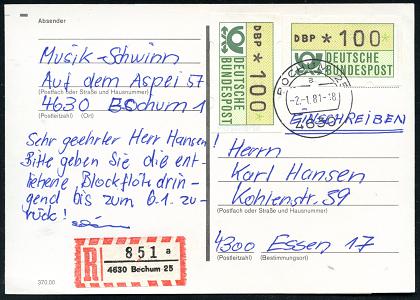 Absender
Musik-Schwinn
Auf dem Aspei 57
(Postfach oder Straße und Hausnummer)
4630 Bochum 1
(Postleitzahl) (Ort)
Sehr geehrter Herr Hansen!
Bitte geben Sie die ent-
liehene Blockflöte drin-
gend bis zum 6.1. zu-
rück!
R 851 a
4630 Bochum 25
370.00
DBP * 100
DEUTSCHE
BUNDESPOST
DBP * 100
DEUTSCHE
BUNDESPOST
BOCHUM
a
-2.-1.81-18
4630
EINSCHREIBEN
Herrn
Karl Hansen
Kohlenstr. 39
(Postfach oder Straße und Hausnummer)
4300 Essen 17
(Postleitzahl) (Bestimmungsort)